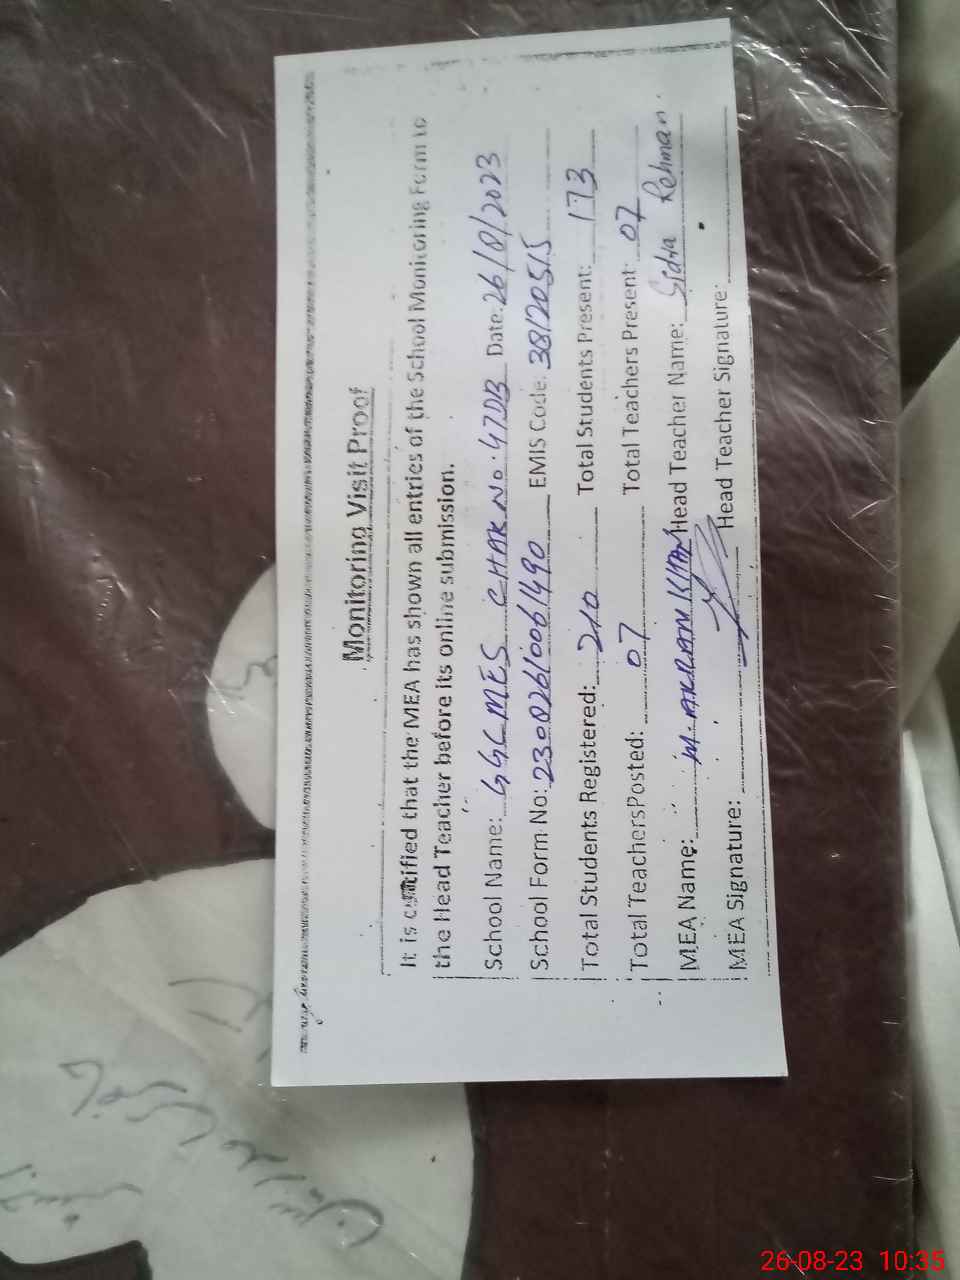 Monitoring Visit Proof
It is certified that the MEA has shown all entries of the School Monitoring Form to
the Head Teacher before its online submission.
School Name: GGCMES CHAK No. 47DB Date: 26/8/2023
School Form No: 23002610061490 EMIS Code: 38120515
Total Students Registered: 210 Total Students Present: 173
Total Teachers Posted: 07 Total Teachers Present: 07
MEA Name: M. AKRAM KHAN Head Teacher Name: Sidra Rehman
MEA Signature: Head Teacher Signature:
26-08-23 10:35